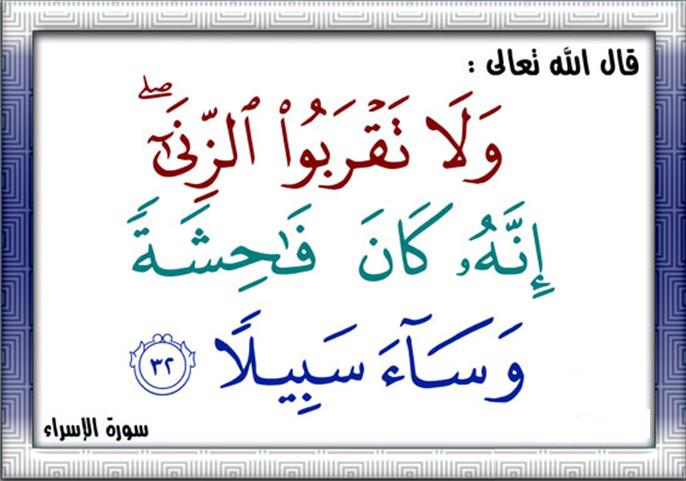 قال الله تعالى :
وَلَا تَقْرَبُوا۟ ٱلزِّنَىٰٓ ۖ
إِنَّهُۥ كَانَ فَٰحِشَةً
وَسَآءَ سَبِيلًا ٣٢
سورة الإسراء